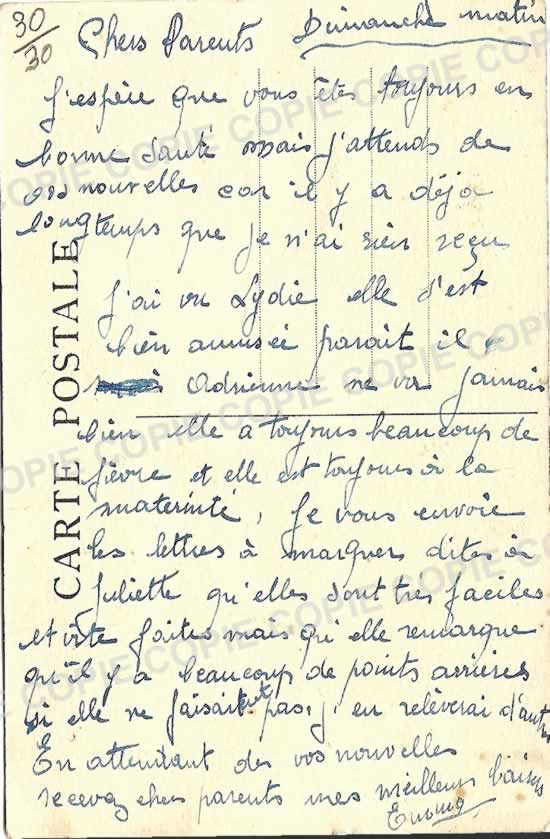 30/30
Dimanche matin
Chers Parents
J'espère que vous êtes toujours en
bonne santé mais j'attends de
vos nouvelles car il y a déjà
longtemps que je n'ai rien reçu
J'ai vu Lydie elle s'est
bien amusée parait il
Adrienne ne va jamais
bien elle a toujours beaucoup de
fièvre et elle est toujours à la
maternité, Je vous envoie
les lettres à marquer dites à
Juliette qu'elles sont très faciles
et vite faites mais qu'elle remarque
qu'il y a beaucoup de points arrières
si elle ne faisait pas, j'en relèverai d'autres
En attendant des vos nouvelles
recevez chers parents mes meilleurs baisers
CARTE POSTALE
COPIE COPIE COPIE COPIE